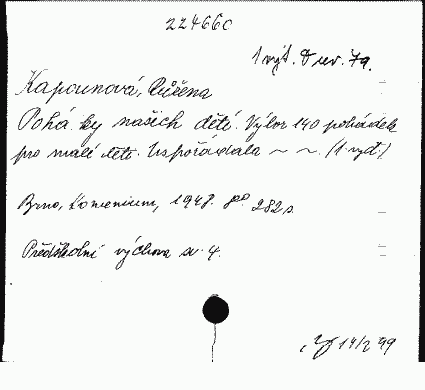 224660
1 výt. Kapounová, Růžena
Pohádky našich dětí. Výbor 140 pohádek
pro malé děti. Uspořádala ~ ~. (1. vyd.)
Brno, Komenium, 1948. 8° 282 s.
Předškolní výchova sv. 4.